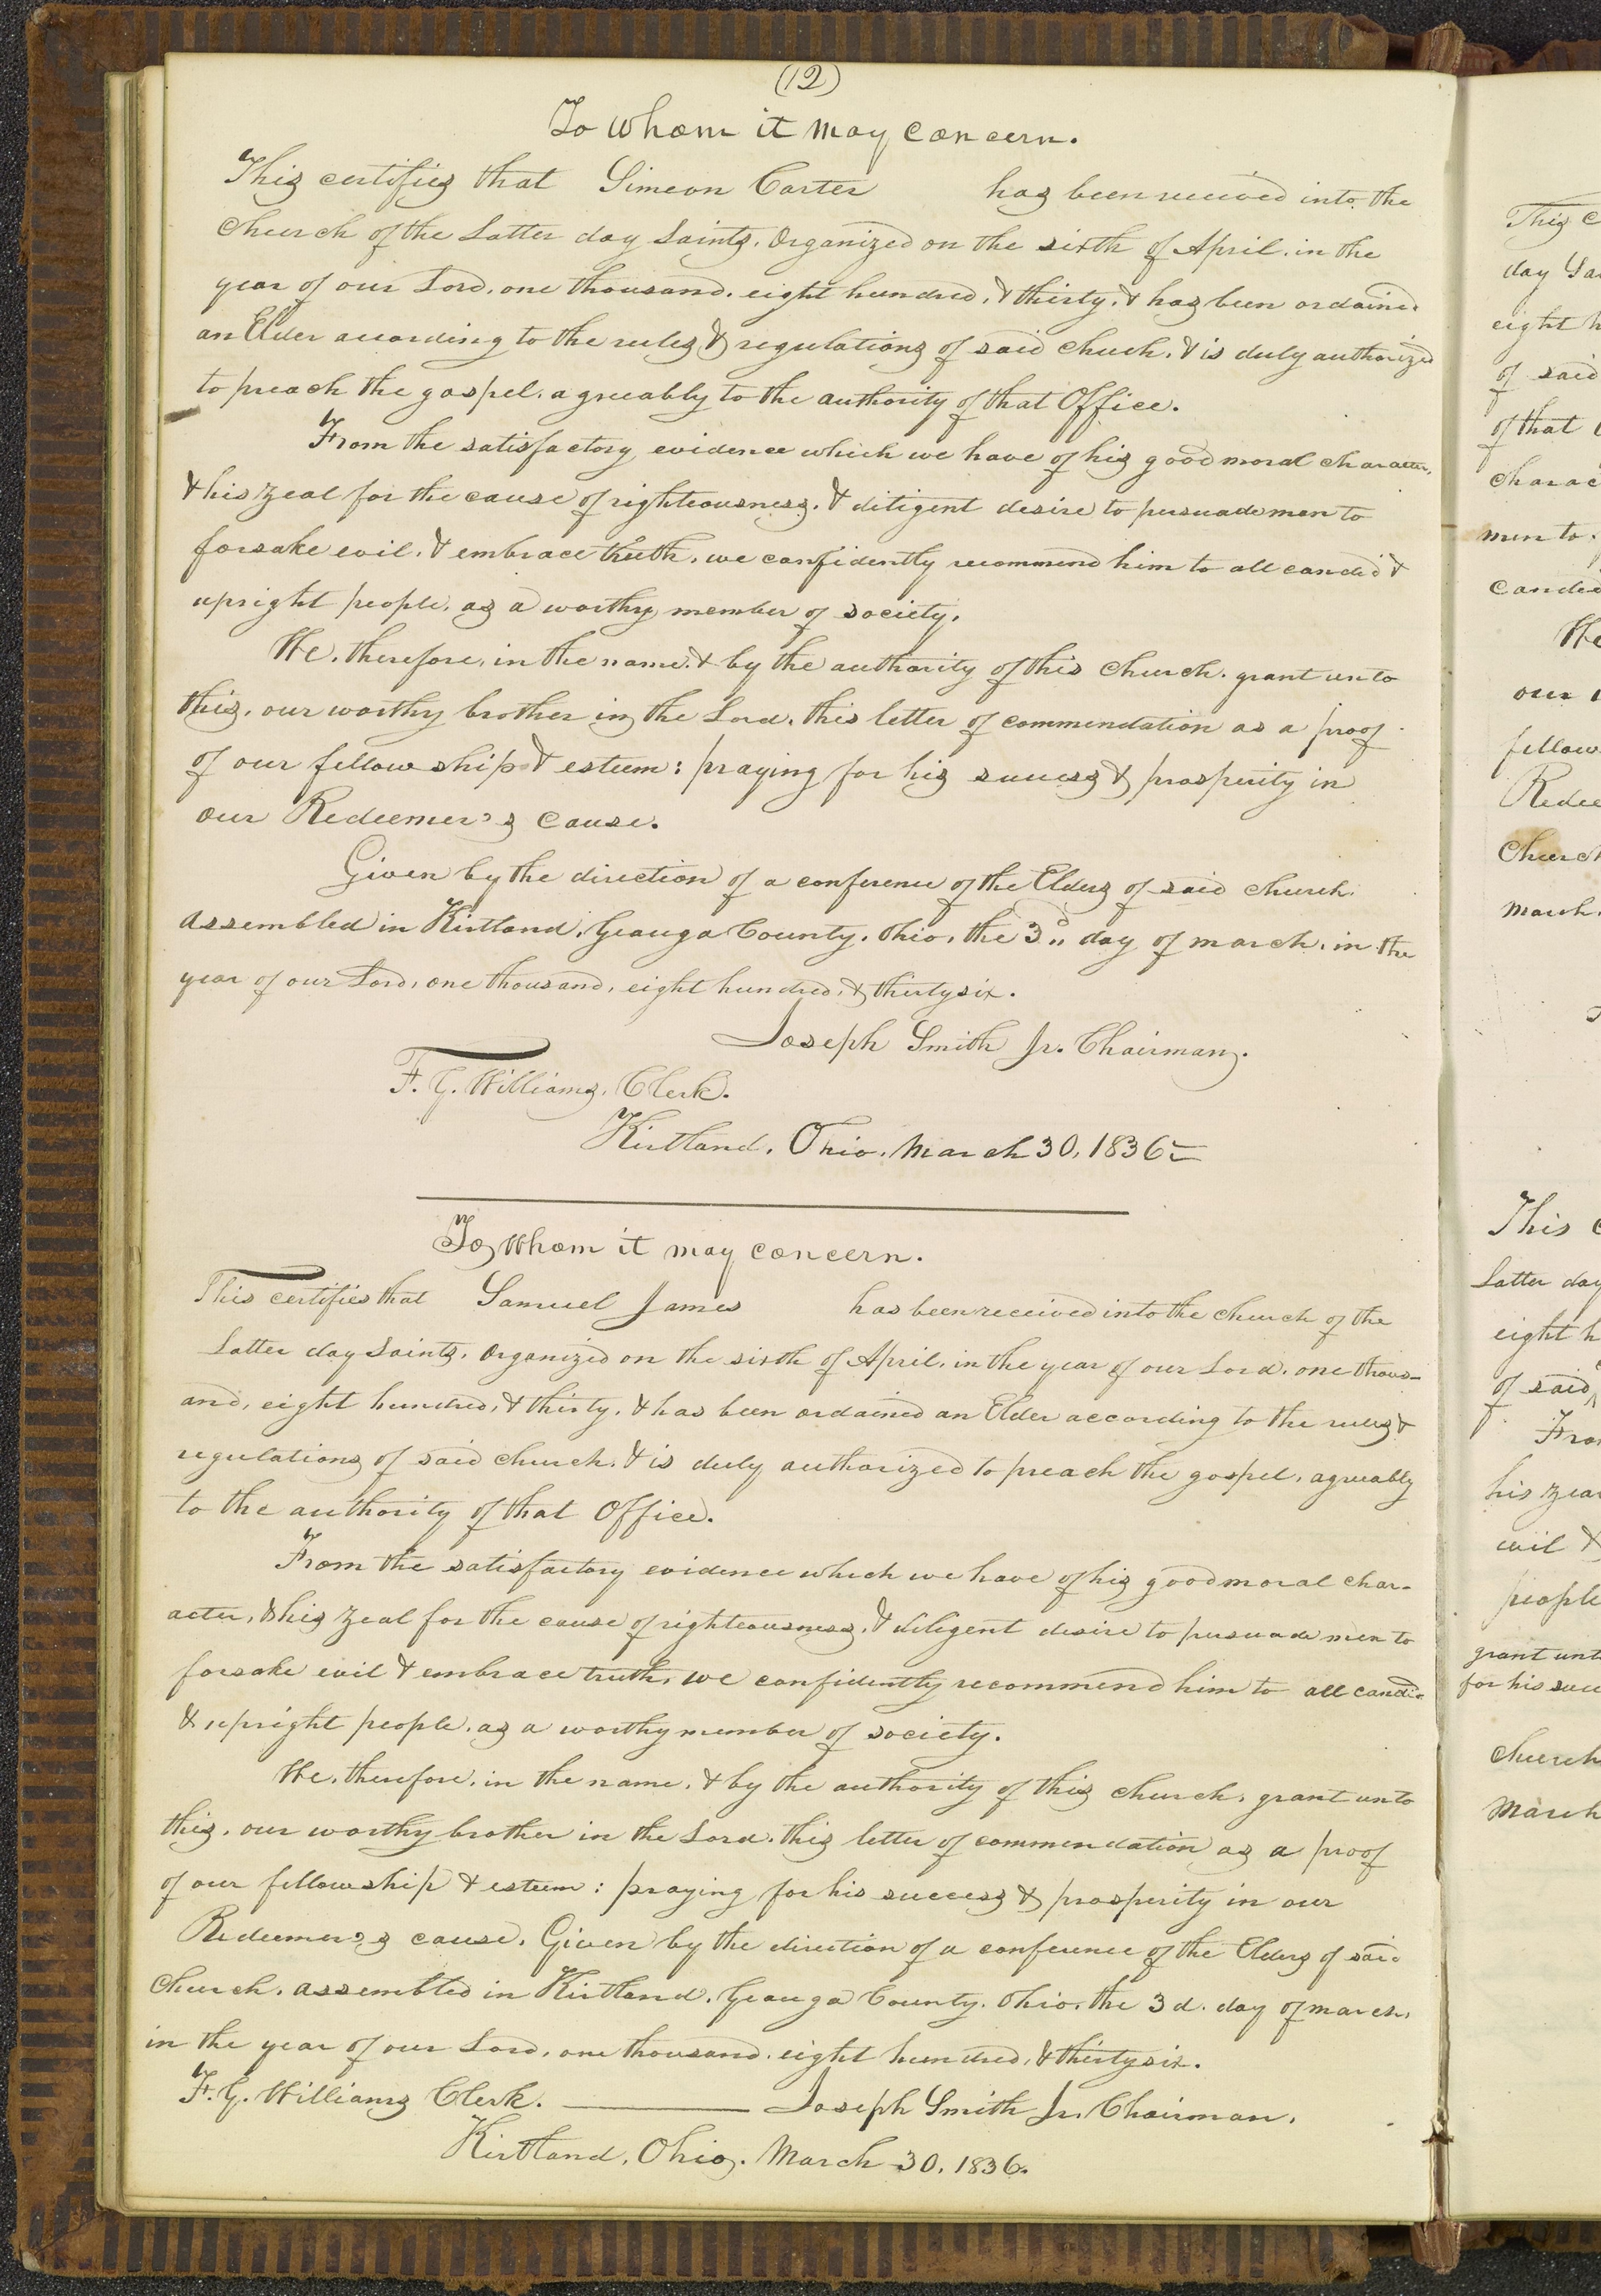 (12)
To Whom it may concern.
This certifies that Simeon Carter has been received into the
Church of the Latter day Saints, Organized on the sixth of April, in the
year of our Lord, one thousand, eight hundred, & thirty, & has been ordained
an Elder according to the rules & regulations of said church, & is duly authorized
to preach the gospel, agreeably to the authority of that Office.
From the satisfactory evidence which we have of his good moral character,
& his zeal for the cause of righteousness, & diligent desire to persuade men to
forsake evil, & embrace truth, we confidently recommend him to all candid &
upright people, as a worthy member of society.
We, therefore, in the name, & by the authority of this church, grant unto
this, our worthy brother in the Lord, this letter of commendation as a proof
of our fellowship & esteem: praying for his success & prosperity in
our Redeemer's cause.
Given by the direction of a conference of the Elders of said church
assembled in Kirtland, Geauga County, Ohio, the 3d day of march, in the
year of our Lord, one thousand, eight hundred, & thirty six.
Joseph Smith Jr. Chairman.
F. G. Williams, Clerk.
Kirtland, Ohio, March 30, 1836=
To Whom it may concern.
This certifies that Samuel James has been received into the church of the
Latter day Saints, Organized on the sixth of April, in the year of our Lord, one thous-
and, eight hundred, & thirty, & has been ordained an Elder according to the rules &
regulations of said church, & is duly authorized to preach the gospel, agreeably
to the authority of that Office.
From the satisfactory evidence which we have of his good moral char-
acter, & his zeal for the cause of righteousness, & diligent desire to persuade men to
forsake evil & embrace truth, we confidently recommend him to all candid
& upright people, as a worthy member of society.
We, therefore, in the name, & by the authority of this church, grant unto
this, our worthy brother in the Lord, this letter of commendation as a proof
of our fellowship & esteem: praying for his success & prosperity in our
Redeemer's cause. Given by the direction of a conference of the Elders of said
church, assembled in Kirtland, Geauga County, Ohio, the 3d. day of march,
in the year of our Lord, one thousand, eight hundred, & thirty six.
F. G. Williams Clerk. Joseph Smith Jr. Chairman.
Kirtland, Ohio, March 30, 1836.
This c
day Sa
eight h
of said
of that
charac
men to
candid
We
our
fellow
Redee
Church
March
This
Latter day
eight h
of said
Fro
his zea
evil &
people
grant unt
for his succ
church
March